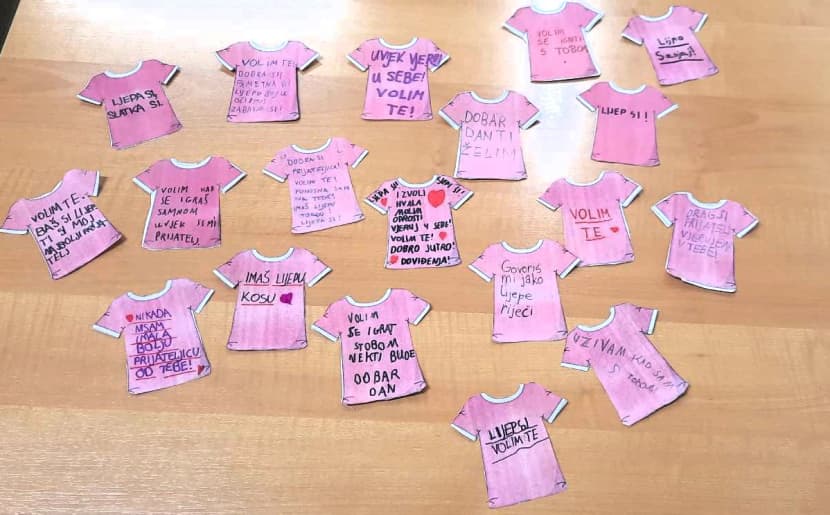 LJEPA SI,
SLATKA SI.
VOLIM TE!
DOBRA SI!
PAMETNA SI!
LIJEPU BOJU
OČIJU
ZABAVNA SI!
UVJEK VJERUJ
U SEBE!
VOLIM
TE!
VOLIM
SE IGRATI
S TOBOM
Lijepo
Sanjaj!
DOBAR
DAN TI
ŽELIM
LIJEP SI!
VOLIM TE.
BAŠ SI LIJEP
TI SI MOJ
NAJBOLJI PRIJA
TELJ
VOLIM KAD
SE IGRAŠ
SAMNOM
UVJEK SI MI
PRIJATELJ
DOBRA SI
PRIJATELJICA!
VOLIM TE!
PONOSNA SAM
NA TEBE!
IMAŠ LIJEPU
LIJEPA SI!
SUPER SI!
IZVOLI
HVALA
MOLIM
OPROSTI
VJERUJ U SEBE!
VOLIM TE!
DOBRO JUTRO!
DOVIĐENJA!
VOLIM
TE
DRAG SI
PRIJATELJ
VJERUJEM
U TEBE!
NIKADA
NISAM
IMALA
BOLJU
PRIJATELJICU
OD TEBE!
IMAŠ LIJEPU
KOSU
VOLIM
SE IGRAT
STOBOM
NEKTI BUDE
DOBAR
DAN
Govoris
mi jako
lijepe
riječi
UŽIVAM KAD SAM
S TOBOM
LIJEP SI
VOLIM TE